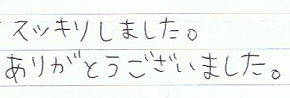 スッキリしました。
ありがとうございました。